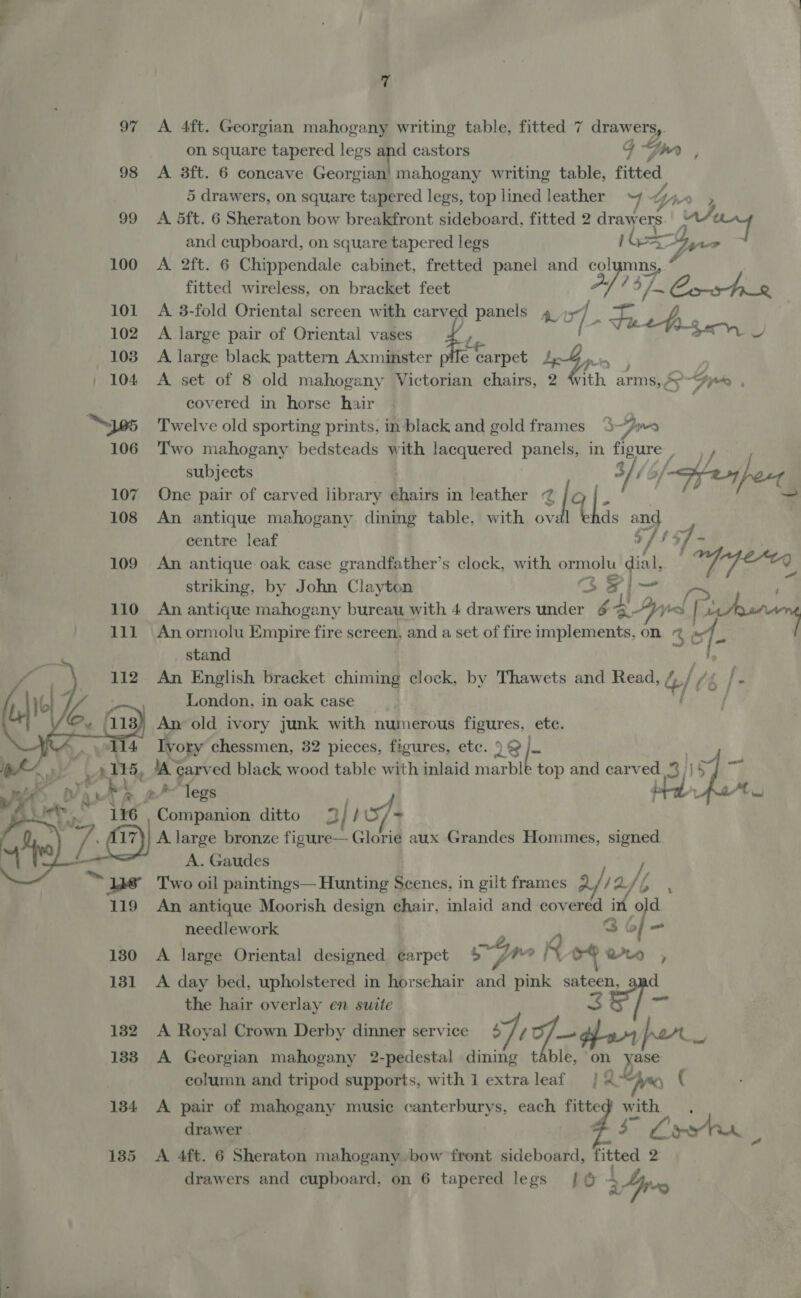 7
97 A 4ft. Georgian mahogany writing table, fitted 7 drawers,
on square tapered legs and castors 9 Gns
98 A 3ft. 6 concave Georgian mahogany writing table, fitted
5 drawers, on square tapered legs, top lined leather 7 Gns
99 A 5ft. 6 Sheraton bow breakfront sideboard, fitted 2 drawers
and cupboard, on square tapered legs
100 A 2ft. 6 Chippendale cabinet, fretted panel and columns,
fitted wireless, on bracket feet
101 A 3-fold Oriental screen with carved panels
102 A large pair of Oriental vases
103 A large black pattern Axminster pile carpet
104 A set of 8 old mahogany Victorian chairs, 2 with arms,
covered in horse hair
105 Twelve old sporting prints, in black and gold frames 3 Gns
106 Two mahogany bedsteads with lacquered panels, in figure
subjects
107 One pair of carved library chairs in leather
108 An antique mahogany dining table, with oval ends and
centre leaf
109 An antique oak case grandfather's clock, with ormolu dial,
striking, by John Clayton 38/-
110 An antique mahogany bureau with 4 drawers under
111 An ormolu Empire fire screen, and a set of fire implements, on
stand
112 An English bracket chiming clock, by Thawets and Read,
London, in oak case
113 An old ivory junk with numerous figures, etc.
114 Ivory chessmen, 32 pieces, figures, etc.
115, A carved black wood table with inlaid marble top and carved
legs
116 Companion ditto
117 A large bronze figure—Glorie aux Grandes Hommes, signed
A. Gaudes
118 Two oil paintings—Hunting Scenes, in gilt frames
119 An antique Moorish design chair, inlaid and covered in old
needlework
130 A large Oriental designed carpet
131 A day bed, upholstered in horsehair and pink sateen, and
the hair overlay en suite
132 A Royal Crown Derby dinner service
133 A Georgian mahogany 2-pedestal dining table, on vase
column and tripod supports, with 1 extra leaf
134 A pair of mahogany music canterburys, each fitted with
drawer
135 A 4ft. 6 Sheraton mahogany bow front sideboard, fitted 2
drawers and cupboard, on 6 tapered legs